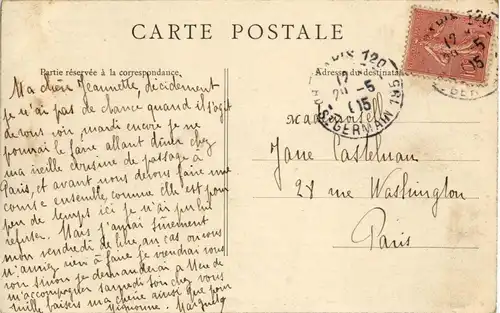 CARTE POSTALE
Partie réservée à la correspondance
Adresse du destinataire
PARIS 120
12
29 -5
05
R. ST GERMAIN
Ma chère Jeannette, décidément
je n'ai pas de chance quand il s'agit
de vous voir, mardi encore je ne
pourrai le faire allant dîner chez
ma vieille cousine de passage à
Paris, et avant nous devons faire une
course ensemble, comme elle est pour
peu de temps ici je n'ai pu lui
refuser. Mais j'aurai sûrement
mon vendredi de libre au cas où vous
n'auriez rien à faire je viendrai vous
voir sinon je demanderai à Mère de
m'accompagner samedi soir chez vous
mille baisers ma chérie ainsi que pour
Mignonne. Marguerite
Mademoiselle
Jane Castelnau
28 rue Washington
Paris